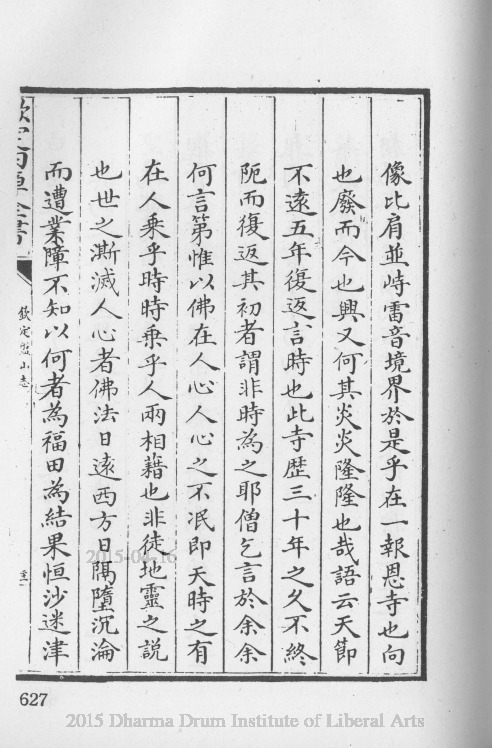 像比肩並峙雷音境界於是乎在一報恩寺也向
也廢而今也興又何其炎炎隆隆也哉語云天節
不遠五年復返言時也此寺歷三十年之久不終
阨而復返其初者謂非時為之耶僧乞言於余余
何言第惟以佛在人心人心之不泯即天時之有
在人乘乎時時乘乎人兩相藉也非徒地靈之說
也世之澌滅人心者佛法日遠西方日隔墮沉淪
而遭業障不知以何者為福田為結果恒沙迷津
欽定四庫全書
欽定盤山志
627
2015-04-16
2015 Dharma Drum Institute of Liberal Arts